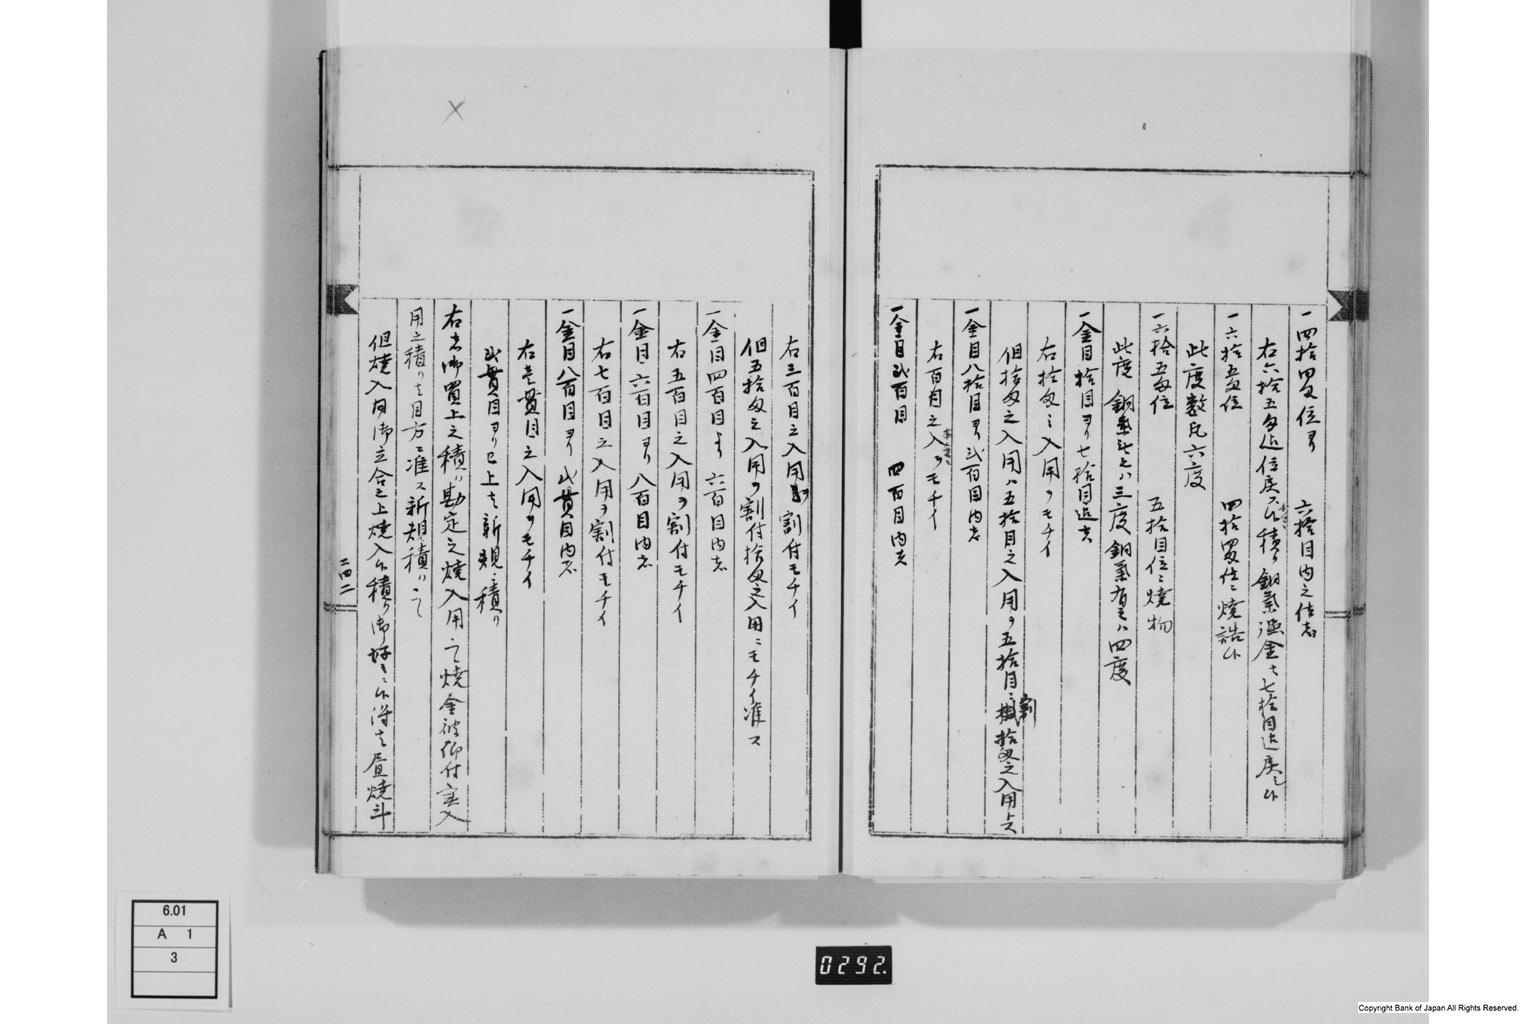 一四拾四匁位ヨリ 六拾目内之位者
右六拾五匁近位戻スル積リ銅氣強金ハ七拾目近戻シル
一六拾五匁位 四拾四匁位ニ焼詰ル
此度数凡六度
一六拾五匁位 五拾目位ニ焼物
此度 銅氣無之ハ三度銅氣有之ハ四度
一金目拾目ヨリ七拾目迄者
右拾匁之入用ヲモチイ
但拾匁之入用ハ五拾目之入用ヲ五拾目ニ割拾匁之入用ト云
一金目八拾目ヨリ弐百目内者
右百目之入ヲモチイ
一金目弐百目 四百目内者
右三百目之入用ヲ割付モチイ
但五拾匁之入用ヲ割付拾匁之入用ニモチイ准ス
一金目四百目ヨリ 六百目内者
右五百目之入用ヲ割付モチイ
一金目六百目ヨリ 八百目内者
右七百目之入用ヲ割付モチイ
一金目八百目ヨリ 弐貫目内者
右壱貫目之入用ヲモチイ
弐貫目ヨリ已上ハ新規ニ積リ
右者御買上之積ハ勘定之焼入用ニて焼金被仰付
用之積リハ目方ニ准ス新規積ハニて
但焼入用御立合之上焼入ル積リ御好キニル得ハ昼焼斗
二四二
6.01
A 1
3
0292.
Copyright Bank of Japan All Rights Reserved.